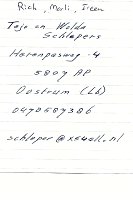 Rich, Marli, Ireen
Tejo en Welda
Schlapers
Harenpasweg 4
5807 AP
Oostrum (Lb)
0478587386
schlaper@xs4all.nl